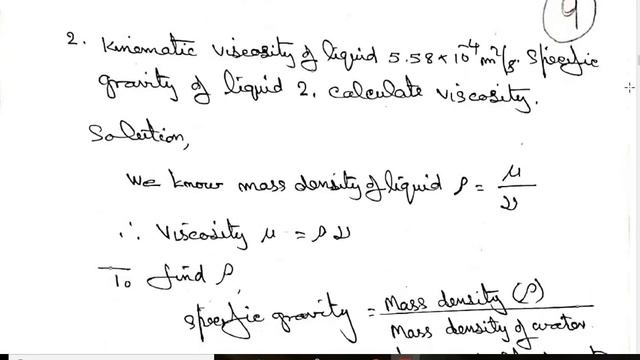 9
2. Kinematic viscosity of liquid 5.58 × 10⁻⁴ m²/s. Specific
gravity of liquid 2. Calculate viscosity.
Solution,
We know mass density of liquid ρ = μ/ν
∴ Viscosity μ = ρν
To find ρ,
Specific gravity = Mass density (ρ)
Mass density of water